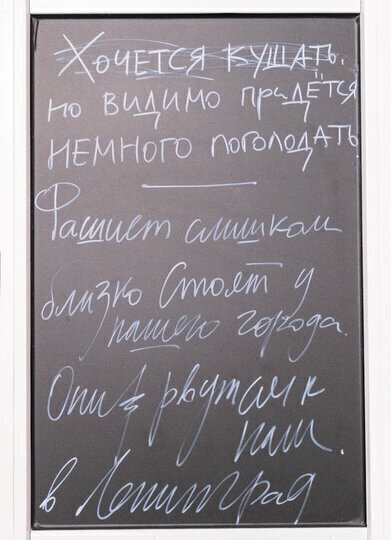 Хочется кушать,
но видимо придётся
немного поголодать
Фашист слишком
близко стоят у
нашего города.
Они рвутся к
нам.
в Ленинград